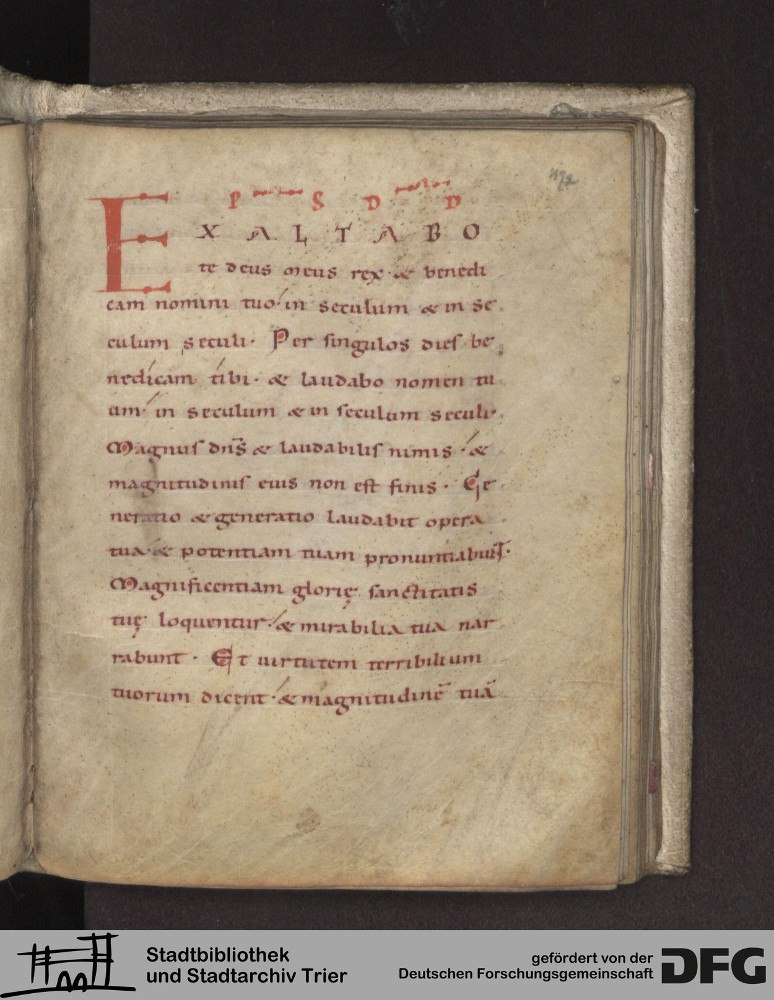 P S D D
EXALTABO
te deus meus rex & benedi
cam nomini tuo in seculum & in se
culum seculi. Per singulos dies be
nedicam tibi. & laudabo nomen tu
um in seculum & in seculum seculi.
Magnus dn̄s & laudabilis nimis. &
magnitudinis eius non est finis. Ge
neratio & generatio laudabit opera
tua. & potentiam tuam pronuntiabunt.
Magnificentiam glorię sanctitatis
tuę loquentur. & mirabilia tua nar
rabunt. Et uirtutem terribilium
tuorum dicent. & magnitudinē tuā
Stadtbibliothek
und Stadtarchiv Trier
gefördert von der
Deutschen Forschungsgemeinschaft
DFG